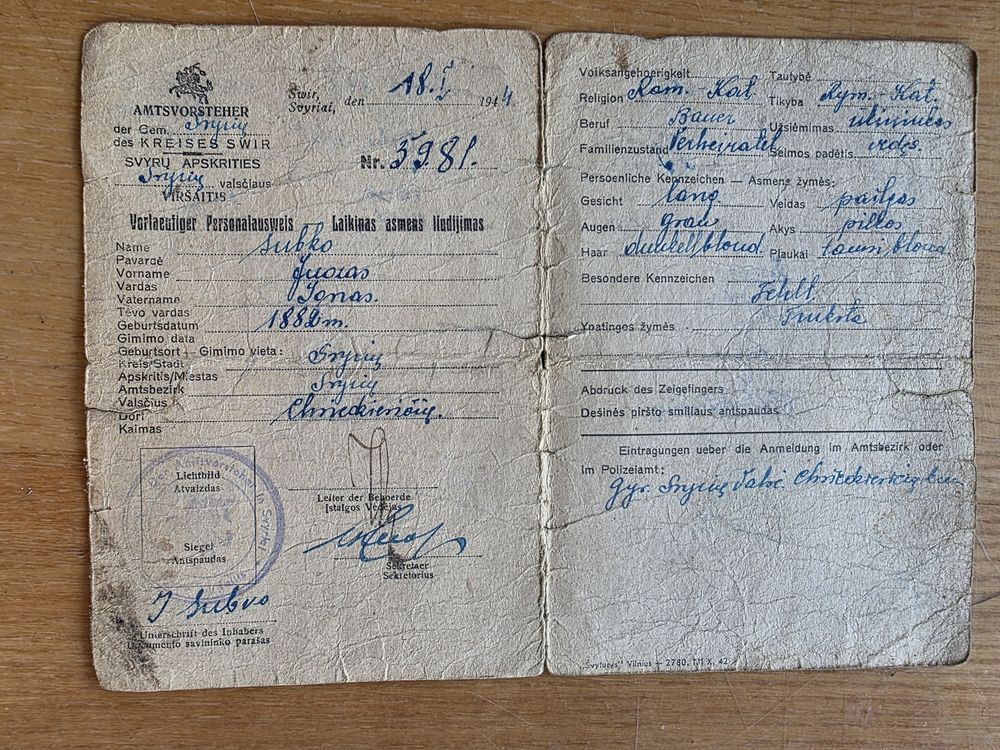 Swir,
Svyriai, den 18. I 1944
AMTSVORSTEHER
der Gem. Svyrių
des KREISES SWIR
SVYRŲ APSKRITIES
Svyrių valsčiaus
VIRŠAITIS
Nr. 5981.
Vorlaeufiger Personalausweis — Laikinas asmens liudijimas
Name Subko
Pavardė
Vorname Juozas
Vardas
Vatername Jonas.
Tėvo vardas
Geburtsdatum 1882 m.
Gimimo data
Geburtsort — Gimimo vieta:
Kreis/Stadt Svyrių
Apskritis/Miestas
Amtsbezirk Svyrių
Valsčius
Dorf
Kaimas
Lichtbild
Atvaizdas
Siegel
Antspaudas
Leiter der Behoerde
Įstaigos Vedėjas
Sekretaer
Sekretorius
Unterschrift des Inhabers
Dokumento savininko parašas
Volksangehoerigkeit Tautybė
Religion Rom. Kat. Tikyba Rym. Kat.
Beruf Bauer Užsiėmimas ūkininkas
Familienzustand Verheiratet Šeimos padėtis vedęs.
Persoenliche Kennzeichen — Asmens žymės:
Gesicht lang Veidas pailgas
Augen grau Akys pilkos
Haar dunkellblond Plaukai tamsi blond
Besondere Kennzeichen Fehlt
Ypatingos žymės
Abdruck des Zeigefingers
Dešinės piršto smiliaus antspaudas
Eintragungen ueber die Anmeldung im Amtsbezirk oder
im Polizeiamt: Gyv. Svyrių Valsč.
„Švyturys" Vilnius — 2780. III X. 42